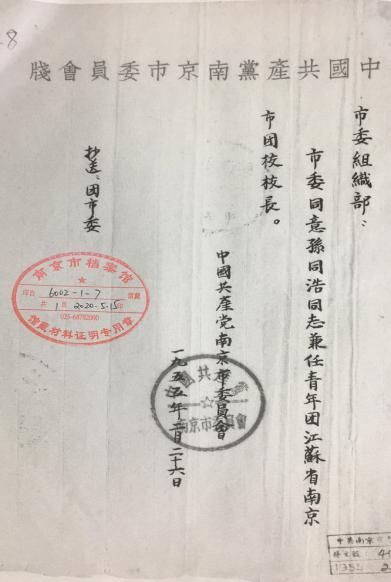 中國共產黨南京市委員會牋
市委組織部：
市委同意孫同浩同志兼任青年团江蘇省南京
市团校校長。
中國共產党南京市委員會
一九五五年二月二十六日
抄送：团市委
南京市档案馆
6002-1-7
共1页 2020.5.15
025-68782000
馆藏材料证明专用章
南京市委員會
中共南京
1955